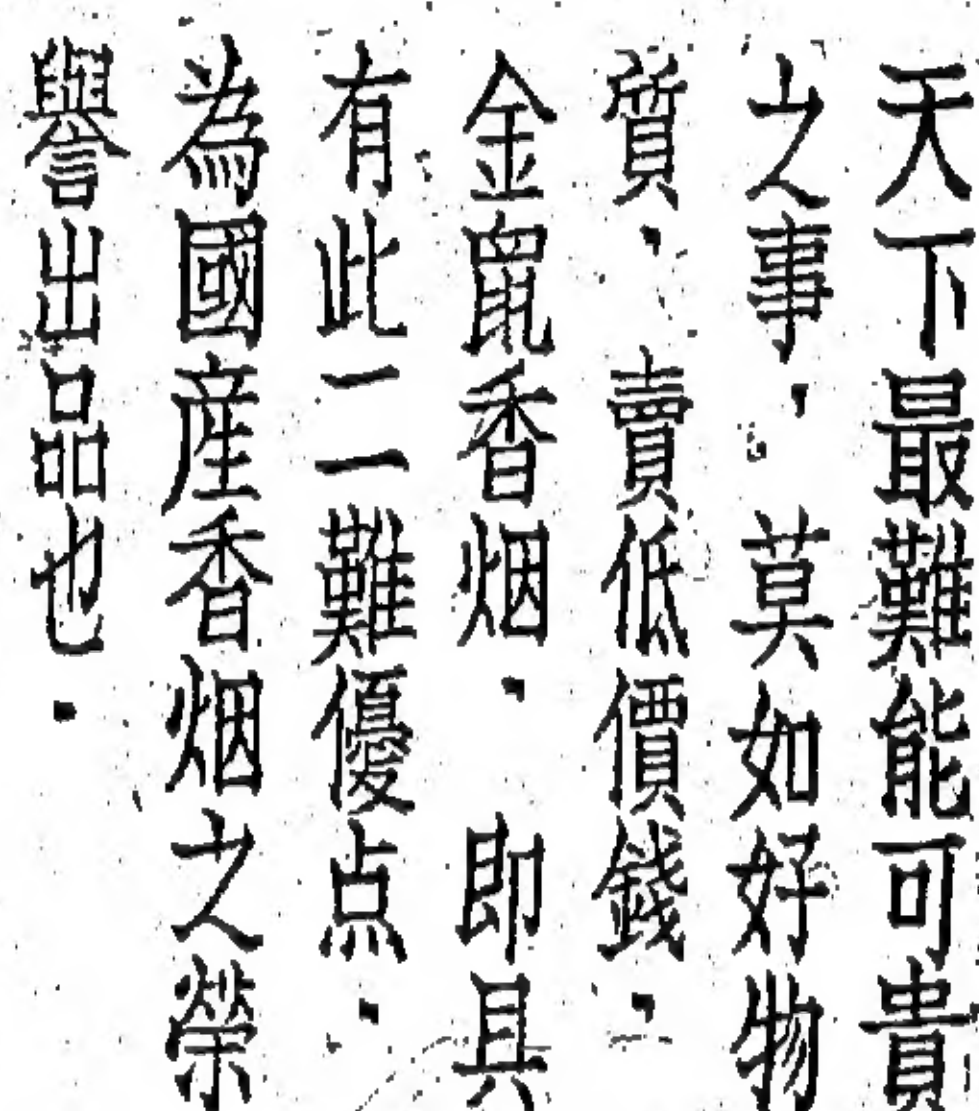 天下最難能可貴
之事，莫如好物
質、賣低價錢．
金鼠香烟．即具
有此二難優点．
為國産香烟之榮
譽出品也．